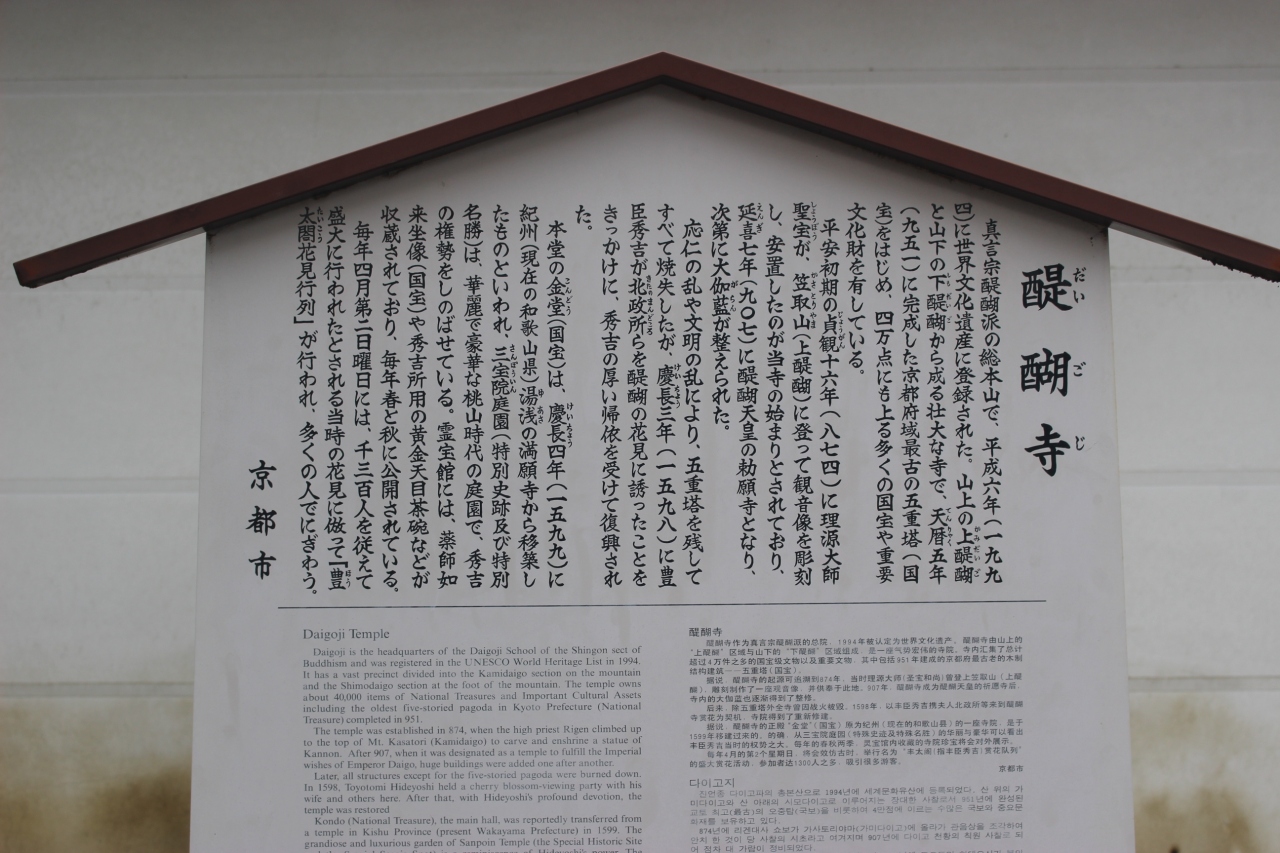 醍醐寺
だいごじ
真言宗醍醐派の総本山で、平成六年（一九九
四）に世界文化遺産に登録された。山上の上醍醐
と山下の下醍醐から成る壮大な寺で、天暦五年
（九五一）に完成した京都府域最古の五重塔（国
宝）をはじめ、四万点にも上る多くの国宝や重要
文化財を有している。
平安初期の貞観十六年（八七四）に理源大師
聖宝が、笠取山（上醍醐）に登って観音像を彫刻
し、安置したのが当寺の始まりとされており、
延喜七年（九〇七）に醍醐天皇の勅願寺となり、
次第に大伽藍が整えられた。
応仁の乱や文明の乱により、五重塔を残して
すべて焼失したが、慶長三年（一五九八）に豊
臣秀吉が北政所らを醍醐の花見に誘ったことを
きっかけに、秀吉の厚い帰依を受けて復興され
た。
本堂の金堂（国宝）は、慶長四年（一五九九）に
紀州（現在の和歌山県）湯浅の満願寺から移築し
たものといわれ、三宝院庭園（特別史跡及び特別
名勝）は、華麗で豪華な桃山時代の庭園で、秀吉
の権勢をしのばせている。霊宝館には、薬師如
来坐像（国宝）や秀吉所用の黄金天目茶碗などが
収蔵されており、毎年春と秋に公開されている。
毎年四月第二日曜日には、千三百人を従えて
盛大に行われたとされる当時の花見に倣って「豊
太閤花見行列」が行われ、多くの人でにぎわう。
京都市
Daigoji Temple
Daigoji is the headquarters of the Daigoji School of the Shingon sect of
Buddhism and was registered in the UNESCO World Heritage List in 1994.
It has a vast precinct divided into the Kamidaigo section on the mountain
and the Shimodaigo section at the foot of the mountain. The temple owns
about 40,000 items of National Treasures and Important Cultural Assets
including the oldest five-storied pagoda in Kyoto Prefecture (National
Treasure) completed in 951.
The temple was established in 874, when the high priest Rigen climbed up
to the top of Mt. Kasatori (Kamidaigo) to carve and enshrine a statue of
Kannon. After 907, when it was designated as a temple to fulfill the Imperial
wishes of Emperor Daigo, huge buildings were added one after another.
Later, all structures except for the five-storied pagoda were burned down.
In 1598, Toyotomi Hideyoshi held a cherry blossom-viewing party with his
wife and others here. After that, with Hideyoshi's profound devotion, the
temple was restored
Kondo (National Treasure), the main hall, was reportedly transferred from
a temple in Kishu Province (present Wakayama Prefecture) in 1599. The
grandiose and luxurious garden of Sanpoin Temple (the Special Historic Site
醍醐寺
醍醐寺作为真言宗醍醐派的总院，1994年被认定为世界文化遗产。醍醐寺由山上的
“上醍醐”区域与山下的“下醍醐”区域组成，是一座气势宏伟的寺院。寺内汇集了总计
超过4万件之多的国宝级文物以及重要文物，其中包括951年建成的京都府最古老的木制
结构建筑——五重塔（国宝）。
据说，醍醐寺的起源可追溯到874年，当时理源大师(圣宝和尚)曾登上笠取山（上醍
醐），雕刻制作了一座观音像，并供奉于此地。907年，醍醐寺成为醍醐天皇的祈愿寺后，
寺内的大伽蓝也逐渐得到了整修。
后来，除五重塔外全寺曾因战火被毁。1598年，以丰臣秀吉携夫人北政所等来到醍醐
寺赏花为契机，寺院得到了重新修建。
据说，醍醐寺的正殿“金堂”（国宝）原为纪州（现在的和歌山县）的一座寺院，是于
1599年移建过来的。的确，从三宝院庭园（特殊史迹及特殊名胜）的华丽与豪华可以看出
丰臣秀吉当时的权势之大。每年的春秋两季，灵宝馆内收藏的寺院珍宝将会对外展示。
每年4月的第2个星期日，将会效仿古时，举行名为“丰太阁(指丰臣秀吉)赏花队列”
的盛大赏花活动，参加者达1300人之多，吸引很多游客。
京都市
다이고지
진언종 다이고파의 총본산으로 1994년에 세계문화유산에 등록되었다. 산 위의 가
미다이고와 산 아래의 시모다이고로 이루어지는 장대한 사찰로서 951년에 완성된
교토 최고(最古)의 오중탑(국보)을 비롯하여 4만점에 이르는 수많은 국보와 중요문
화재를 보유하고 있다.
874년에 리겐대사 쇼보가 가사토리야마(가미다이고)에 올라가 관음상을 조각하여
안치 한 것이 당 사찰의 시초라고 여겨지며 907년에 다이고 천황의 칙원 사찰로 되
어 점차 대 가람이 정비되었다.